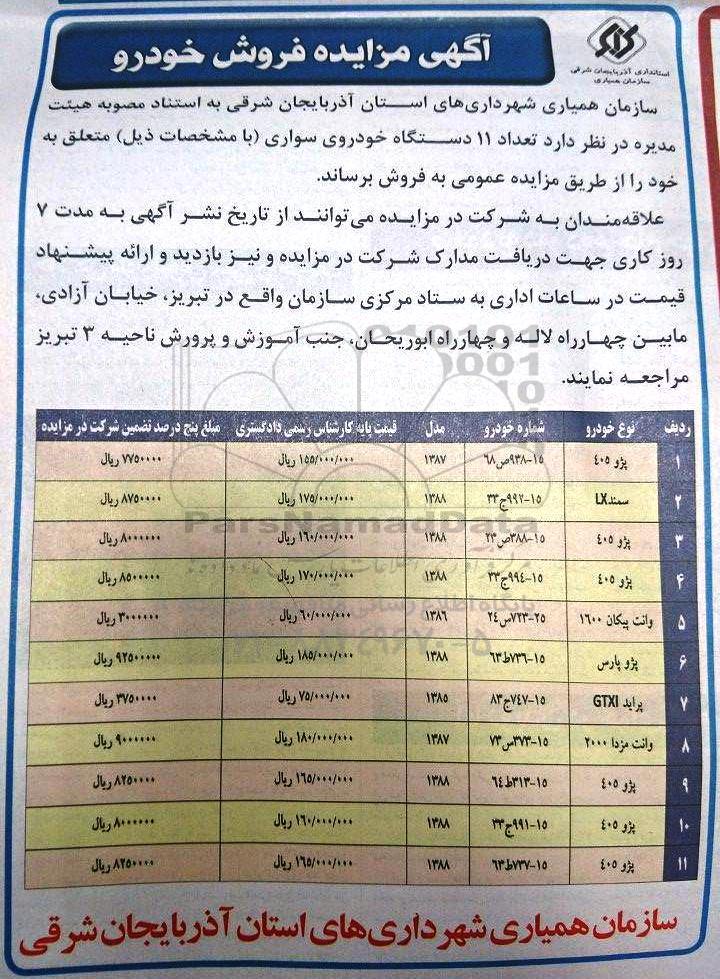 استانداری آذربایجان شرقی
سازمان همیاری
آگهی مزایده فروش خودرو
سازمان همیاری شهرداری‌های استان آذربایجان شرقی به استناد مصوبه هیئت
مدیره در نظر دارد تعداد ۱۱ دستگاه خودروی سواری (با مشخصات ذیل) متعلق به
خود را از طریق مزایده عمومی به فروش برساند.
علاقه‌مندان به شرکت در مزایده می‌توانند از تاریخ نشر آگهی به مدت ۷
روز کاری جهت دریافت مدارک شرکت در مزایده و نیز بازدید و ارائه پیشنهاد
قیمت در ساعات اداری به ستاد مرکزی سازمان واقع در تبریز، خیابان آزادی،
مابین چهارراه لاله و چهارراه ابوریحان، جنب آموزش و پرورش ناحیه ۳ تبریز
مراجعه نمایند.
ردیف نوع خودرو شماره خودرو مدل قیمت پایه کارشناس رسمی دادگستری مبلغ پنج درصد تضمین شرکت در مزایده
۱ پژو ۴۰۵ ۱۵-۹۳۸ص۶۸ ۱۳۸۷ ۱۵۵/۰۰۰/۰۰۰ ریال ۷۷۵۰۰۰۰ ریال
۲ سمندLX ۱۵-۹۹۲ج۳۳ ۱۳۸۸ ۱۷۵/۰۰۰/۰۰۰ ریال ۸۷۵۰۰۰۰ ریال
۳ پژو ۴۰۵ ۱۵-۳۸۸ص۲۳ ۱۳۸۸ ۱۶۰/۰۰۰/۰۰۰ ریال ۸۰۰۰۰۰۰ ریال
۴ پژو ۴۰۵ ۱۵-۹۹۴ج۳۳ ۱۳۸۸ ۱۷۰/۰۰۰/۰۰۰ ریال ۸۵۰۰۰۰۰ ریال
۵ وانت پیکان ۱۶۰۰ ۲۵-۷۲۳س۲۴ ۱۳۸۶ ۶۰/۰۰۰/۰۰۰ ریال ۳۰۰۰۰۰۰ ریال
۶ پژو پارس ۱۵-۷۳۶ط۶۳ ۱۳۸۸ ۱۸۵/۰۰۰/۰۰۰ ریال ۹۲۵۰۰۰۰ ریال
۷ پراید GTXI ۱۵-۷۴۷ج۸۳ ۱۳۸۵ ۷۵/۰۰۰/۰۰۰ ریال ۳۷۵۰۰۰۰ ریال
۸ وانت مزدا ۲۰۰۰ ۱۵-۳۷۳س۷۳ ۱۳۸۷ ۱۸۰/۰۰۰/۰۰۰ ریال ۹۰۰۰۰۰۰ ریال
۹ پژو ۴۰۵ ۱۵-۳۱۳ط۶۴ ۱۳۸۸ ۱۶۵/۰۰۰/۰۰۰ ریال ۸۲۵۰۰۰۰ ریال
۱۰ پژو ۴۰۵ ۱۵-۹۹۱ج۳۳ ۱۳۸۸ ۱۶۰/۰۰۰/۰۰۰ ریال ۸۰۰۰۰۰۰ ریال
۱۱ پژو ۴۰۵ ۱۵-۷۳۷ط۶۳ ۱۳۸۸ ۱۶۵/۰۰۰/۰۰۰ ریال ۸۲۵۰۰۰۰ ریال
ParsNamadData
سازمان همیاری شهرداری‌های استان آذربایجان شرقی